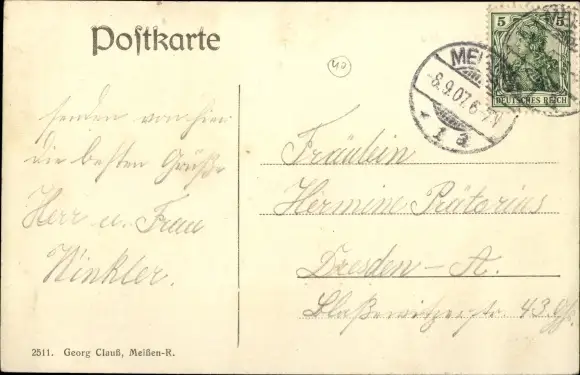 Postkarte
40
5 5
DEUTSCHES REICH
MEI
-8.9.07.6-7N
1 a
senden von hier
die besten Grüße
Herr u. Frau
Winkler.
Fräulein
Hermine Prätorius
Dresden-A.
Blasewitzerstr. 43
2511. Georg Clauß, Meißen-R.